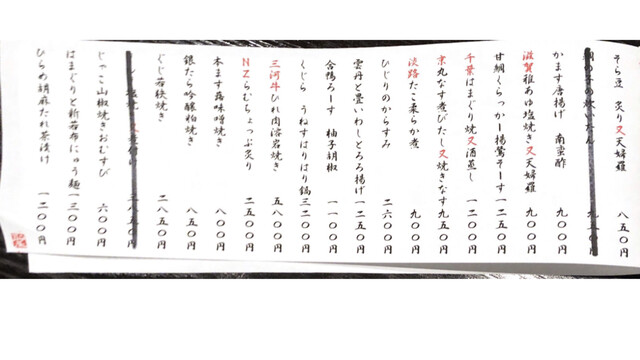 そら豆 炙り又天婦羅 八五〇円
鯛の子の炊いたん 九五〇円
かます唐揚げ 南蛮酢 九〇〇円
滋賀稚あゆ塩焼き又天婦羅 九〇〇円
甘鯛くらっかー揚鶯そーす 一二五〇円
千葉はまぐり焼又酒蒸し 一二〇〇円
京丸なす煮びたし又焼きなす 九五〇円
淡路たこ柔らか煮 九〇〇円
ひじりのからすみ 二六〇〇円
雲丹と畳いわしとろろ揚げ 一二五〇円
合鴨ろーす 柚子胡椒 一一〇〇円
くじら うねすはりはり鍋 三二〇〇円
三河牛ひれ肉溶岩焼き 五八〇〇円
NZらむちょっぷ炙り 二五〇〇円
本ます蕗味噌焼き 八〇〇円
銀たら吟醸粕焼き 八五〇円
ぐじ若狭焼き 二八五〇円
塩焼 煮付け 二八五〇円
じゃこ山椒焼きおむすび 六〇〇円
はまぐりと新若布にゅう麺 一三〇〇円
ひらめ胡麻だれ茶漬け 一二〇〇円